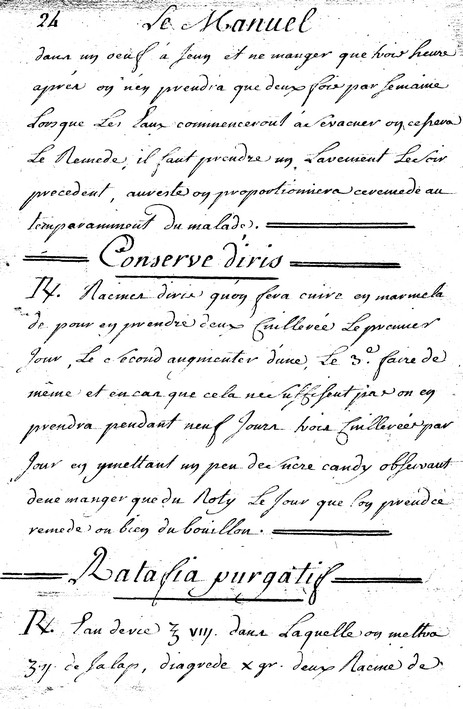 24 Le Manuel
dans un oeuf à Jeun et ne manger que trois heure
aprés on n'en prendra que deux fois par semaine
Lorsque Les Eaux commenceront à sevacuer on cessera
Le Remede, il faut prendre un Lavement Le soir
precedent, aureste on proportionnera ceremede au
temparamment du malade.
Conserve d'iris
℞. Racines d'iris qu'on fera cuire en marmela
de pour en prendre deux Cuillerée Le premier
Jour, Le second augmenter d'une, Le 3.e faire de
même et en cas que cela ne suffisent pas on en
prendra pendant neuf Jours trois Cuillerées par
Jour en y mettant un peu de sucre candy observant
de ne manger que du Roty Le Jour que l'on prend ce
remede ou bien du bouillon.
Ratafia purgatif
℞. Eau de vie ℥ viij. dans Laquelle on mettra
ʒ.ij. de Jalap, diagrede x gr. deux Racine de